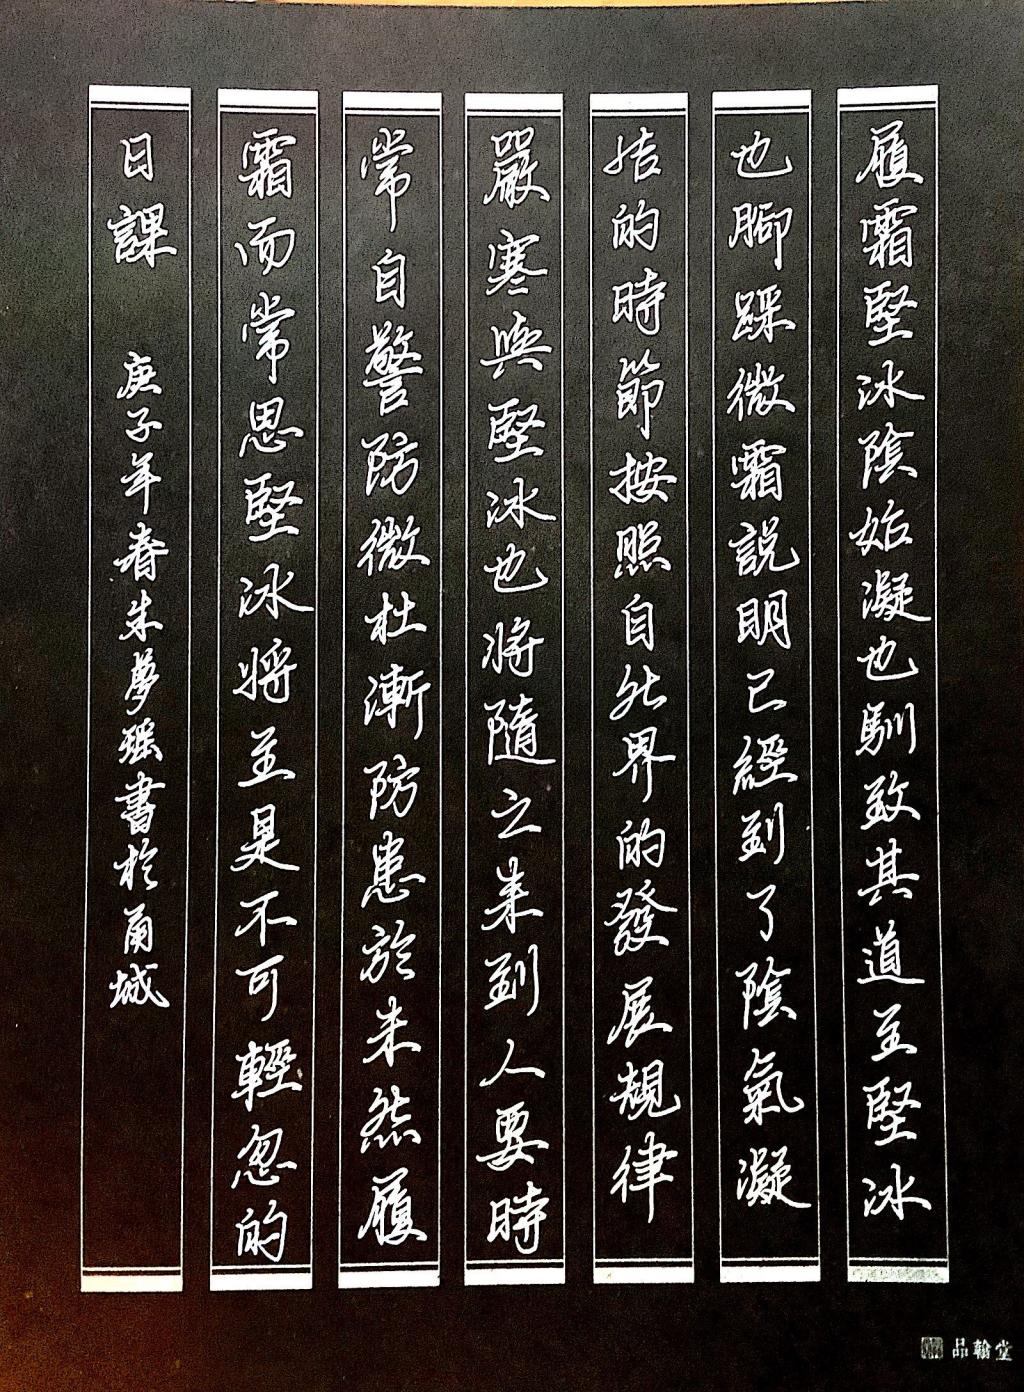 履霜堅冰陰始凝也馴致其道至堅冰
也腳踩微霜說明已經到了陰氣凝
结的時節按照自然界的發展規律
嚴寒與堅冰也將隨之来到人要時
常自警防微杜漸防患於未然履
霜而常思堅冰将至是不可輕忽的
日課 庚子年春朱夢瑶書於甬城
品翰堂